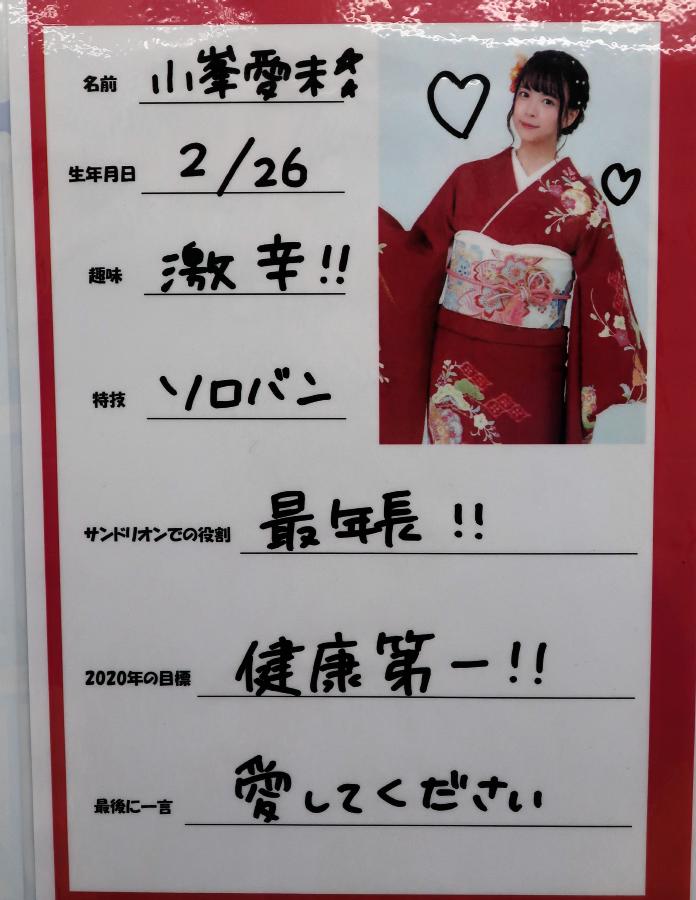 名前 小峯愛未☆☆
生年月日 2/26
趣味 激辛!!
特技 ソロバン
サンドリオンでの役割 最年長!!
2020年の目標 健康第一!!
最後に一言 愛してください